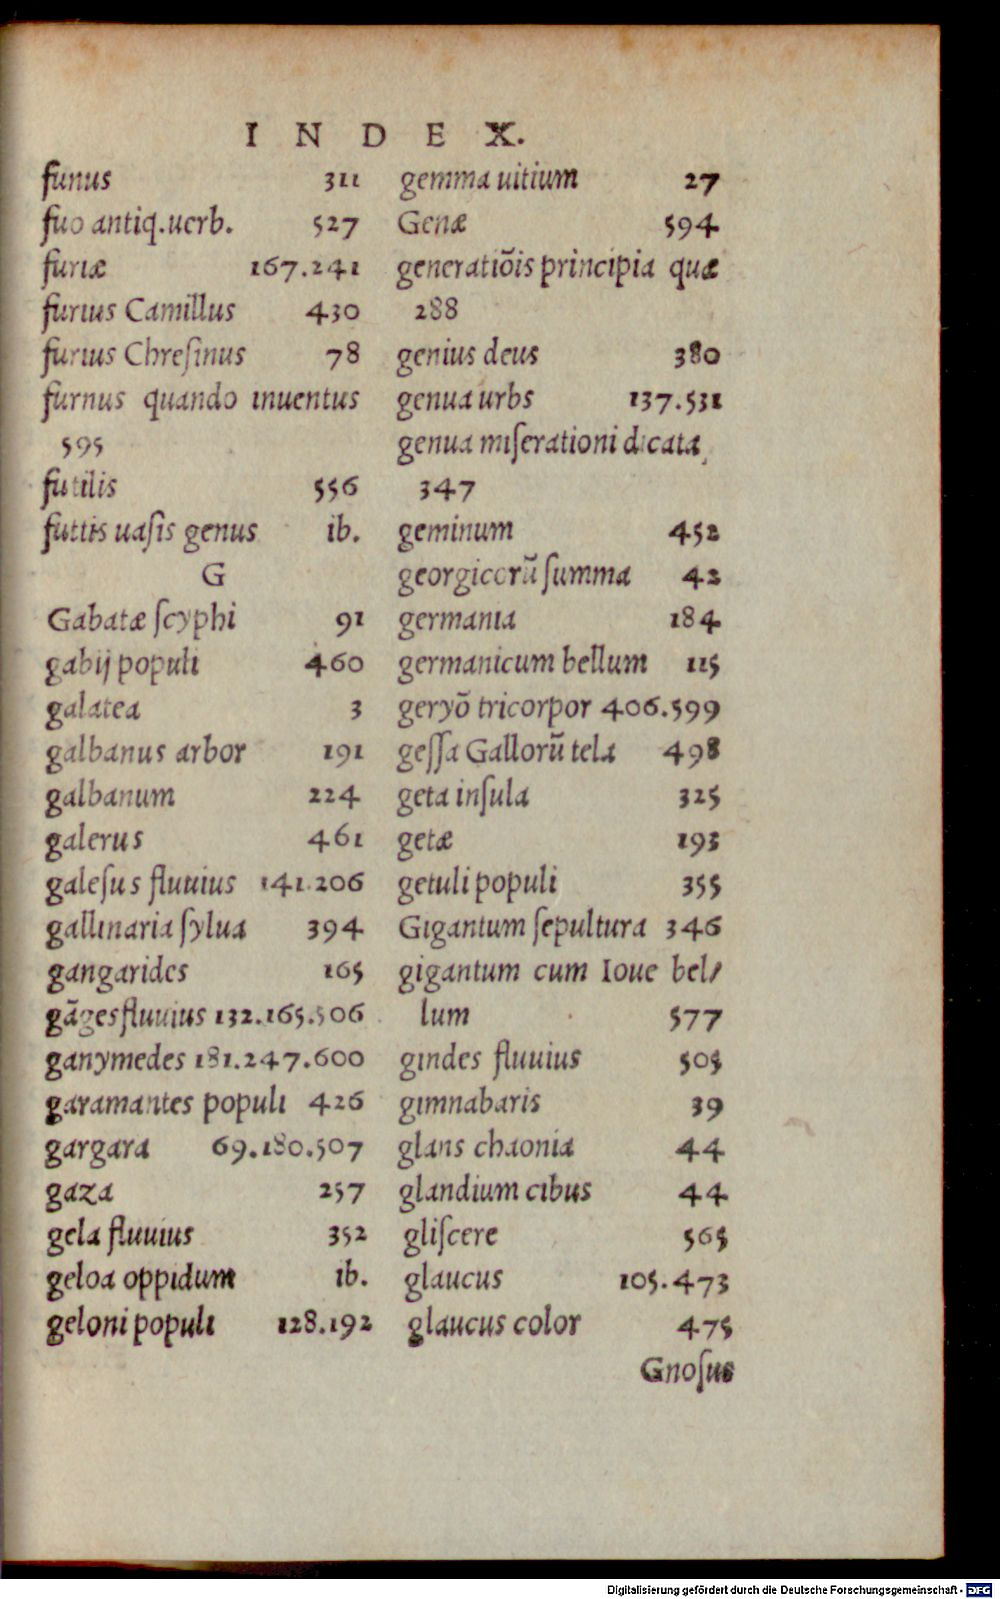 INDEX.
funus 311
fuo antiq.uerb. 527
furiæ 167.241
furius Camillus 430
furius Chreſinus 78
furnus quando inuentus
595
futilis 556
futtis uaſis genus ib.
G
Gabatæ ſcyphi 91
gabij populi 460
galatea 3
galbanus arbor 191
galbanum 224
galerus 461
galeſus fluuius 141.206
gallinaria ſylua 394
gangarides 165
gãges fluuius 132.165.506
ganymedes 181.247.600
garamantes populi 426
gargara 69.180.507
gaza 257
gela fluuius 352
geloa oppidum ib.
geloni populi 128.192
gemma uitium 27
Genæ 594
generatiõis principia quæ
288
genius deus 380
genua urbs 137.531
genua miſerationi dicata
347
geminum 452
georgicorũ ſumma 42
germania 184
germanicum bellum 115
geryõ tricorpor 406.599
geſſa Gallorũ tela 498
geta inſula 325
getæ 193
getuli populi 355
Gigantum ſepultura 346
gigantum cum Ioue bel/
lum 577
gindes fluuius 505
gimnabaris 39
glans chaonia 44
glandium cibus 44
gliſcere 565
glaucus 105.473
glaucus color 475
Gnoſus
Digitalisierung gefördert durch die Deutsche Forschungsgemeinschaft - DFG